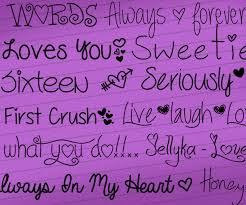 WORDS Always ♥ forever
Loves You Sweetie
Sixteen Seriously
First Crush Live laugh Lo
what you do!!... Jellyka - Love
Always In My Heart ♥ Honey